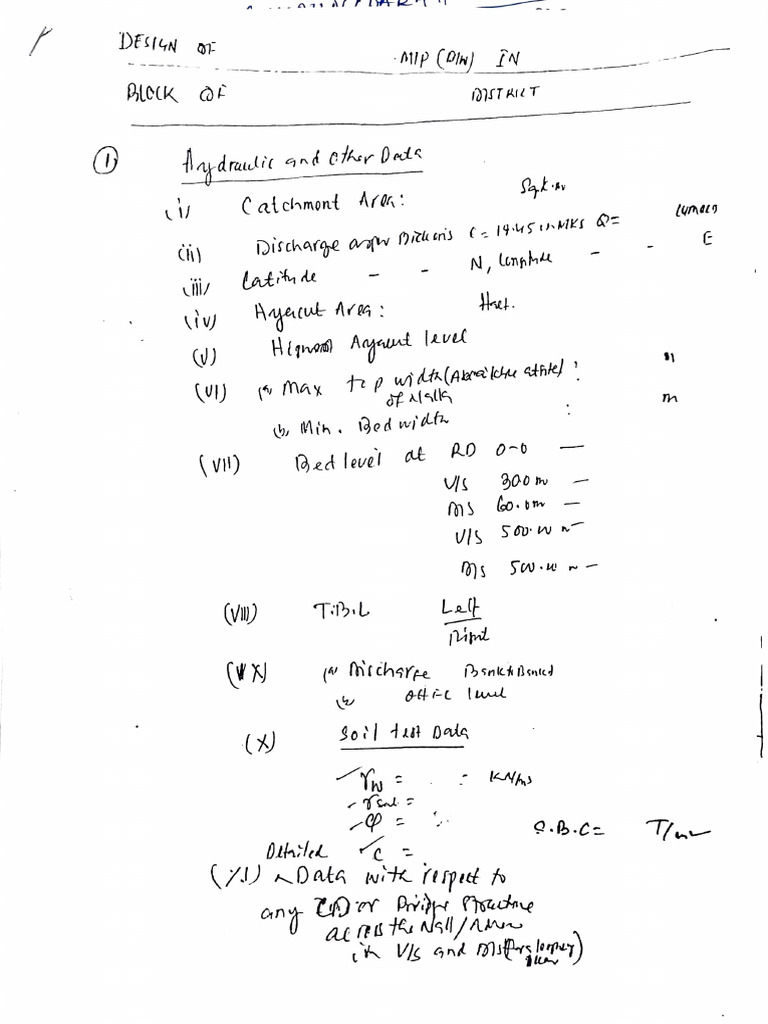 DESIGN OF
MIP (D/W) IN
BLOCK OF DISTRICT
① Hydraulic and Other Data
(i) Catchment Area: Sq.k.m
(ii) Discharge as per Dickens C = 19.45 in MKS Q = Cumecs
(iii) Latitude - - N, Longitude - - E
(iv) Ayacut Area: Hect.
(v) Highest Ayacut level
(VI) (a) Max top width : m
of Nalla
(b) Min. Bed width : m
(VII) Bed level at RD 0-0 —
U/S 300 m —
DS 60.0m —
U/S 500.00 m —
DS 500.00 m —
(VIII) T.B.L Left
Right
(IX) (a) Discharge Bank to Banked
(b) level
(X) Soil test Data
γw = = KN/m3
γsat =
φ =
S.B.C = T/m2
Detailed C =
(XI) Data with respect to
any CD or Bridge Structure
across the Nall/
in U/S and DS